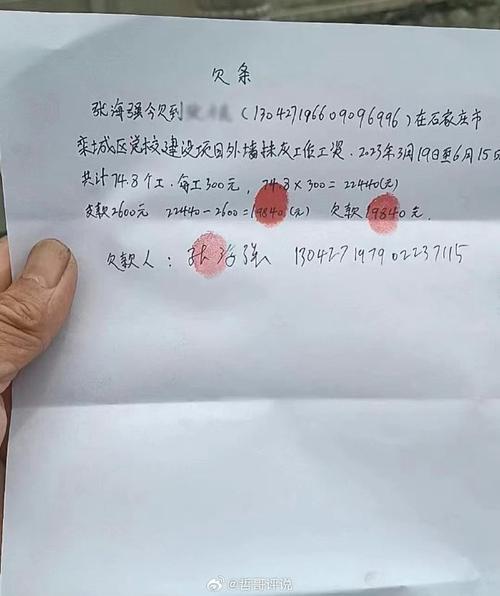 欠条
张海强今欠到（130427196609096996）在石家庄市
栾城区党校建设项目外墙抹灰工作工资。2023年3月19日至6月15日
共计74.8个工，每工300元，74.8×300=22440(元)
支款2600元 22440-2600=19840(元) 欠款19840元.
欠款人：张海强 130427197902237115
@哲哥评说